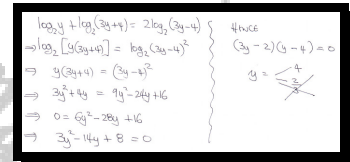 log₂y + log₂(3y+4) = 2log₂(3y-4)
⇒ log₂[y(3y+4)] = log₂(3y-4)²
⇒ y(3y+4) = (3y-4)²
⇒ 3y² + 4y = 9y² - 24y + 16
⇒ 0 = 6y² - 28y + 16
⇒ 3y² - 14y + 8 = 0
HENCE
(3y - 2)(y - 4) = 0
y = 4
2/3